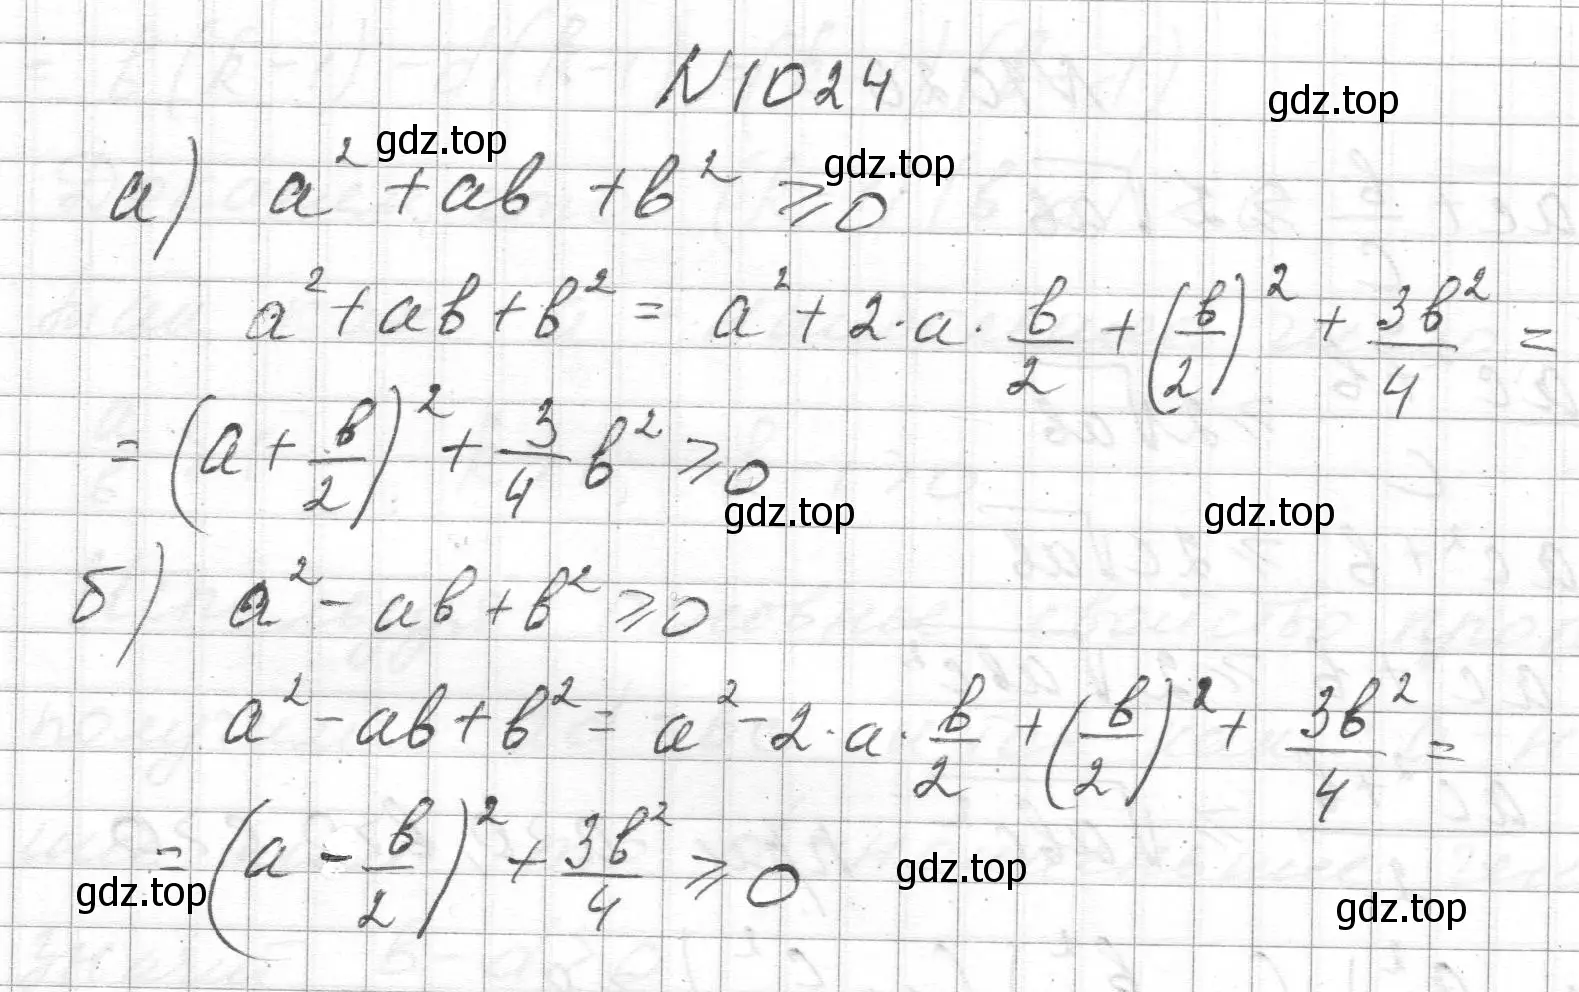 N 1024
gdz.top
gdz.top
gdz.top
а) a² + ab + b² ⩾ 0
a² + ab + b² = a² + 2·a·b/2 + (b/2)² + 3b²/4 =
= (a + b/2)² + 3/4 b² ⩾ 0
gdz.top
gdz.top
б) a² - ab + b² ⩾ 0
a² - ab + b² = a² - 2·a·b/2 + (b/2)² + 3b²/4 =
= (a - b/2)² + 3b²/4 ⩾ 0
gdz.top
gdz.top
gdz.top